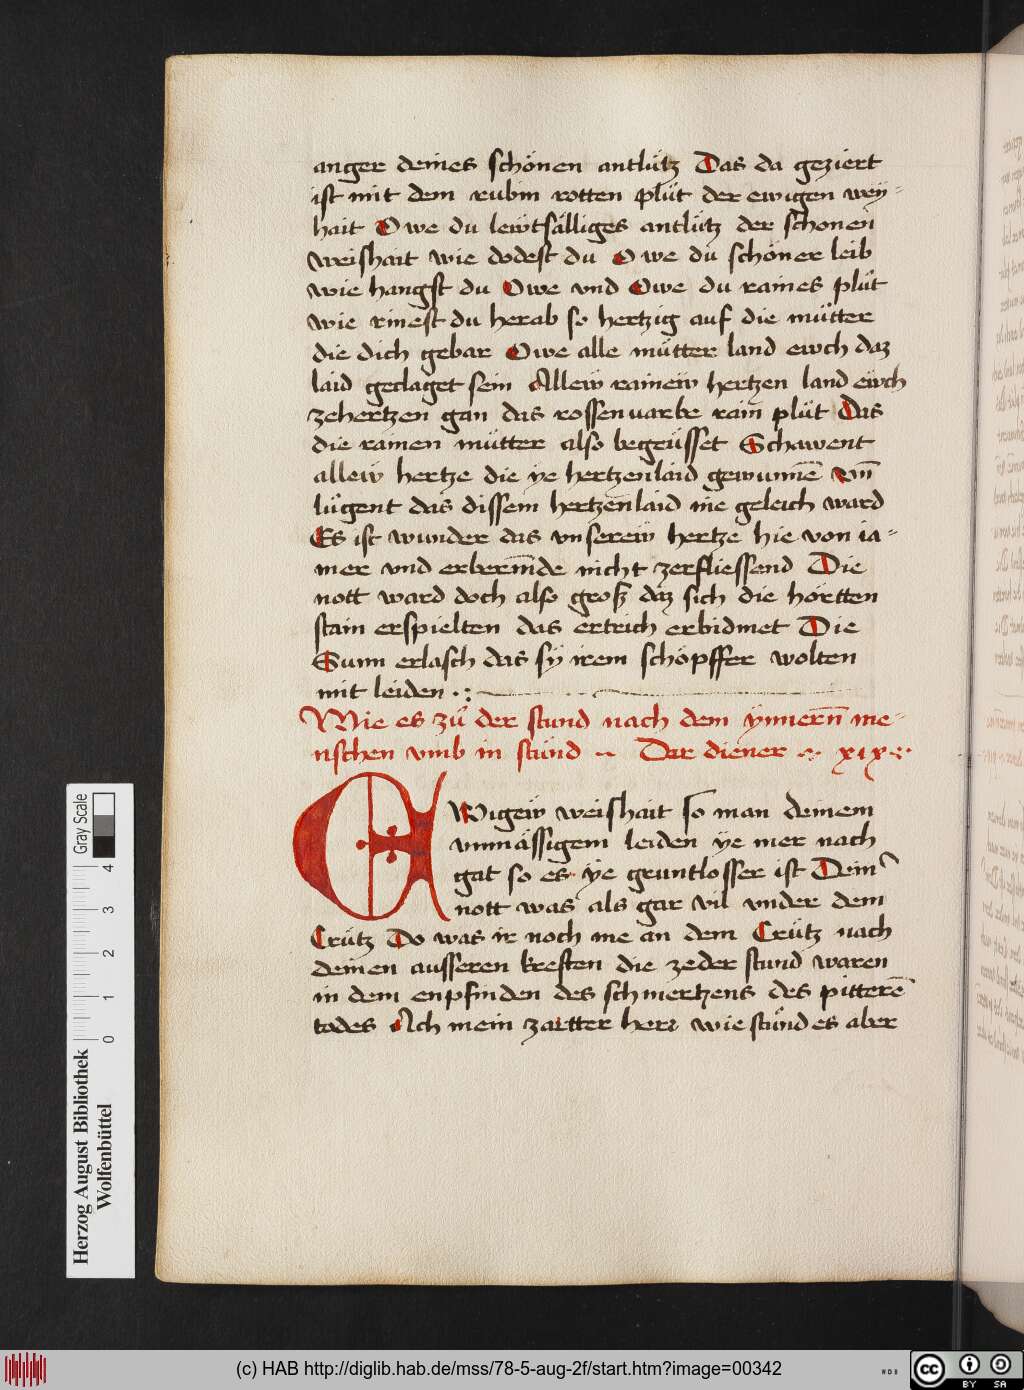 anger deines schönen antlütz Das da geziert
ist mit dem rubin rotten plüt der ewigen wey-
hait Owe du lewtsälliges antlütz der schonen
weishait wie dodest du Owe du schöner leib
wie hangst du Owe vnd Owe du raines plůt
wie rinest du herab so hertzig auf die mütter
die dich gebar Owe alle mütter land ewch daz
laid geclaget sein Allew rainew hertzen land ewch
zehertzen gan das rossenuarbe rain plüt Das
die rainen mütter also begeüsset Schawent
allew hertze die ye hertzenlaid gewunnē vn̄
lůgent das dissem hertzenlaid nie geleich ward
Es ist wunder das vnserew hertze hie von ia-
mer vnd erbermde nicht zerfliessend Die
nott ward doch also groß daz sich die hörtten
stain erspielten das ertrich erbidmet Die
Sunn erlasch das sÿ irem schöpffer wolten
mit leiden
Wie es zů der stund nach dem ÿnnern̄ me-
nschen vmb in stůnd Der diener xix
EWigew weishait so man deinem
vnmässigem leiden ye mer nach
gat so es ye gruntlosser ist Dein
nott was als gar vil vnder dem
Crütz Do was ir noch me an dem Crütz nach
deinen ausseren kreften die zeder stund waren
in dem enpfinden des schmertzens des pitterē
todes Ach mein zartter herr wie stůnd es aber
Gray Scale
4
3
2
1
0
Herzog August Bibliothek
Wolfenbüttel
(c) HAB http://diglib.hab.de/mss/78-5-aug-2f/start.htm?image=00342
WDB
cc BY SA